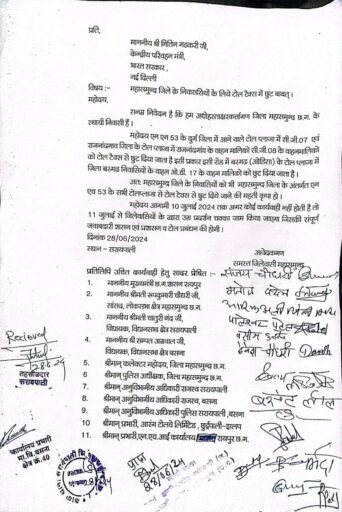 प्रति,
माननीय श्री नितिन गडकरी जी,
केन्द्रीय परिवहन मंत्री,
भारत सरकार,
नई दिल्ली
विषय :- महासमुन्द जिले के निवासियों के लिये टोल टैक्स में छुट बाबत्।
महोदय,
सनम्र निवेदन है कि हम अधोहस्ताक्षरकर्तागण जिला महासमुन्द छ.ग. के
स्थायी निवासी हैं।
महोदय एन एन 53 के दुर्ग जिला में आने वाले टोल प्लाजा में सी.जी.07 एवं
राजनांदगांव जिला के टोल प्लाजा में राजनांदगांव के वाहन मालिको सी.जी.08 के वाहनमालिकों
को टोल टैक्स से छुट दिया जाता है इसी प्रकार इसी रोड में बरगढ़ (ओड़िसा) के टोल प्लाजा में
जिला बरगढ़ निवासियों के वाहन ओ.डी. 17 के वाहन मालिकों को छुट दिया जाता है।
अतः महासमुन्द जिले के निवासियों को भी महासमुन्द जिला के अंतर्गत एन
एच 53 के सभी टोलप्लाजा से टोल टैक्स से छुट दिये जाने की महती कृपा हो।
महोदय आगामी 10 जुलाई 2024 तक अगर कोई कार्यवाही नहीं होती है तो
11 जुलाई से जिलेवासियों के द्वारा उग्र प्रदर्शन चक्का जाम किया जाएगा जिसकी संपूर्ण
जवाबदारी शासन एवं प्रशासन व टोल प्रबंधन की होगी।
दिनांक 28/06/2024
स्थान – सरायपाली
आवेदकगण
समस्त जिलेवासी महासमुन्द
प्रतिलिपि उचित कार्यवाही हेतु सादर प्रेषित :-
1. माननीय मुख्यमंत्री छ.ग.शासन रायपुर
2. माननीय श्रीमती रूपकुमारी चौधरी जी,
सांसद, लोकसभा क्षेत्र महासमुन्द
3. माननीय श्रीमती चातुरी नंद जी,
विधायक, विधानसभा क्षेत्र सरायपाली
4. माननीय श्री सम्पत अग्रवाल जी,
विधायक, विधानसभा क्षेत्र बसना
5. श्रीमान् कलेक्टर महोदय, जिला महासमुन्द छ.ग.
6. श्रीमान् पुलिस अधीक्षक, जिला महासमुन्द छ.ग.
7. श्रीमान् अनुविभागीय अधिकारी राजस्व सरायपाली
8. श्रीमान् अनुविभागीय अधिकारी राजस्व, बसना
9. श्रीमान् अनुविभागीय अधिकारी पुलिस सरायपाली, बसना
10. श्रीमान् प्रभारी, आरंग टोलवे लिमिटेड, छुईपाली–झलप
11. श्रीमान् प्रभारी,एन.एच.आई कार्यालय रायपुर छ.ग.
संजय चौधरी
Recieved
तहसीलदार
सरायपाली
कार्यालय प्रभारी